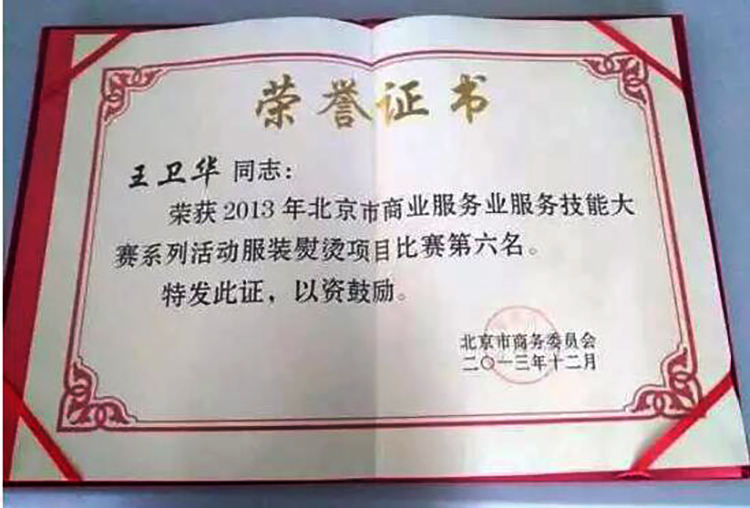 荣誉证书
王卫华 同志：
荣获2013年北京市商业服务业服务技能大
赛系列活动服装熨烫项目比赛第六名。
特发此证，以资鼓励。
北京市商务委员会
二〇一三年十二月